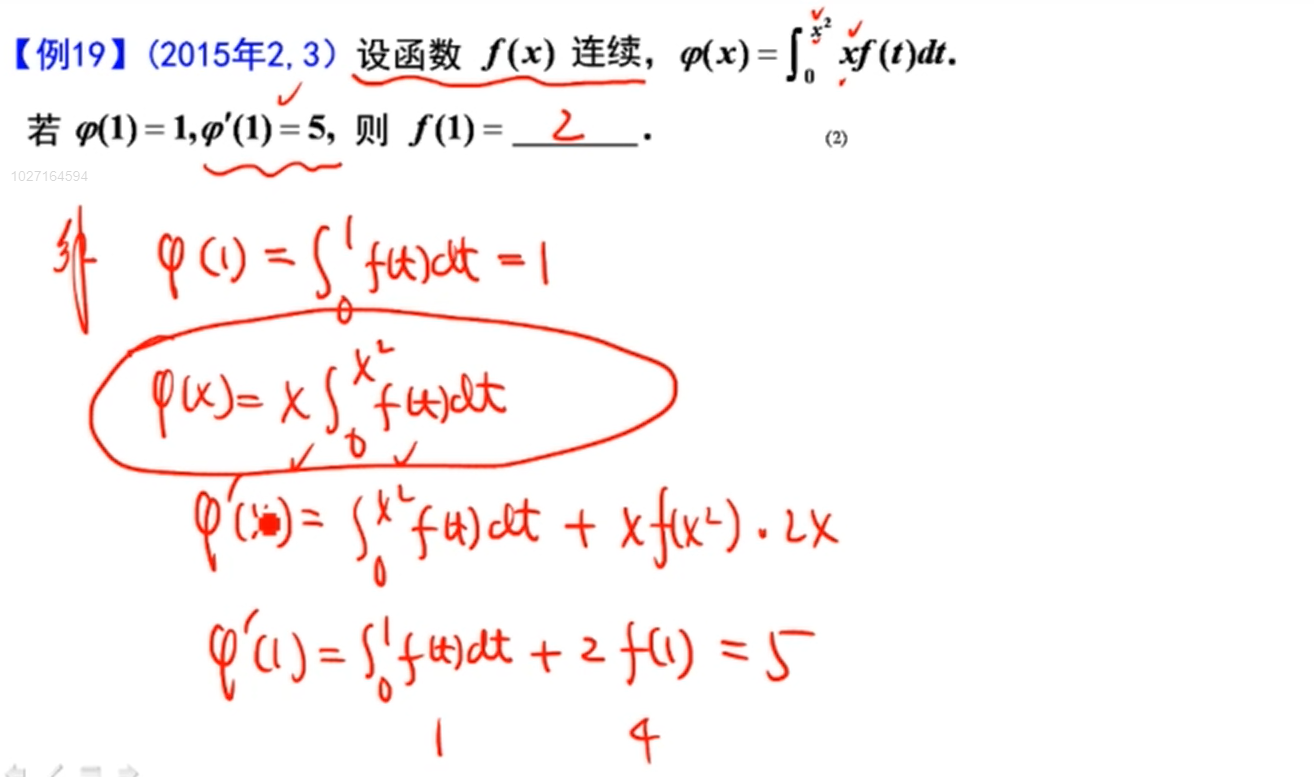 【例19】(2015年2,3) 设函数 f(x) 连续, φ(x) = ∫₀^{x²} xf(t)dt.
若 φ(1) = 1, φ′(1) = 5, 则 f(1) = 2 .
(2)
1027164594
解 φ(1) = ∫₀¹ f(t)dt = 1
φ(x) = x ∫₀^{x²} f(t)dt
φ′(x) = ∫₀^{x²} f(t)dt + x f(x²) · 2x
φ′(1) = ∫₀¹ f(t)dt + 2 f(1) = 5
1 4